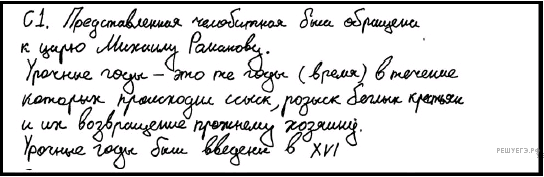 С1. Представленная челобитная была обращена
к царю Михаилу Романову.
Урочные годы – это те годы (время) в течение
которых происходил сыск, розыск беглых крестьян
и их возвращение прежнему хозяину.
Урочные годы были введены в XVI
РЕШУЕГЭ.РФ